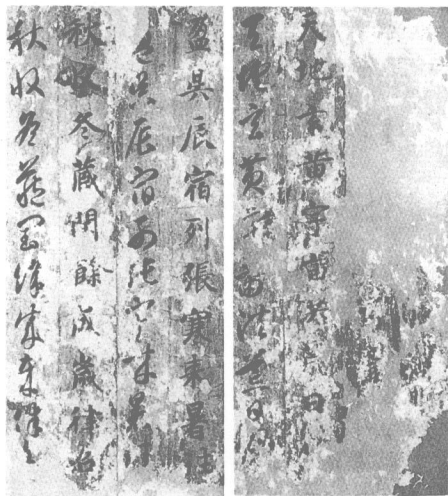 天地玄黃宇宙洪日
天地玄黃宇宙洪荒日月
盈昃辰宿列張寒來暑往
盈昃辰宿列張寒來暑往
秋收冬藏閏餘成歲律呂
秋收冬藏閏餘成歲律呂